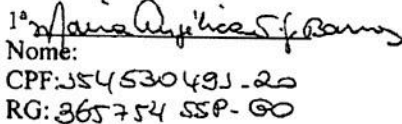 1ª Maria Angélica S. f. Barros
Nome:
CPF: 354530491-20
RG: 365754 SSP-GO